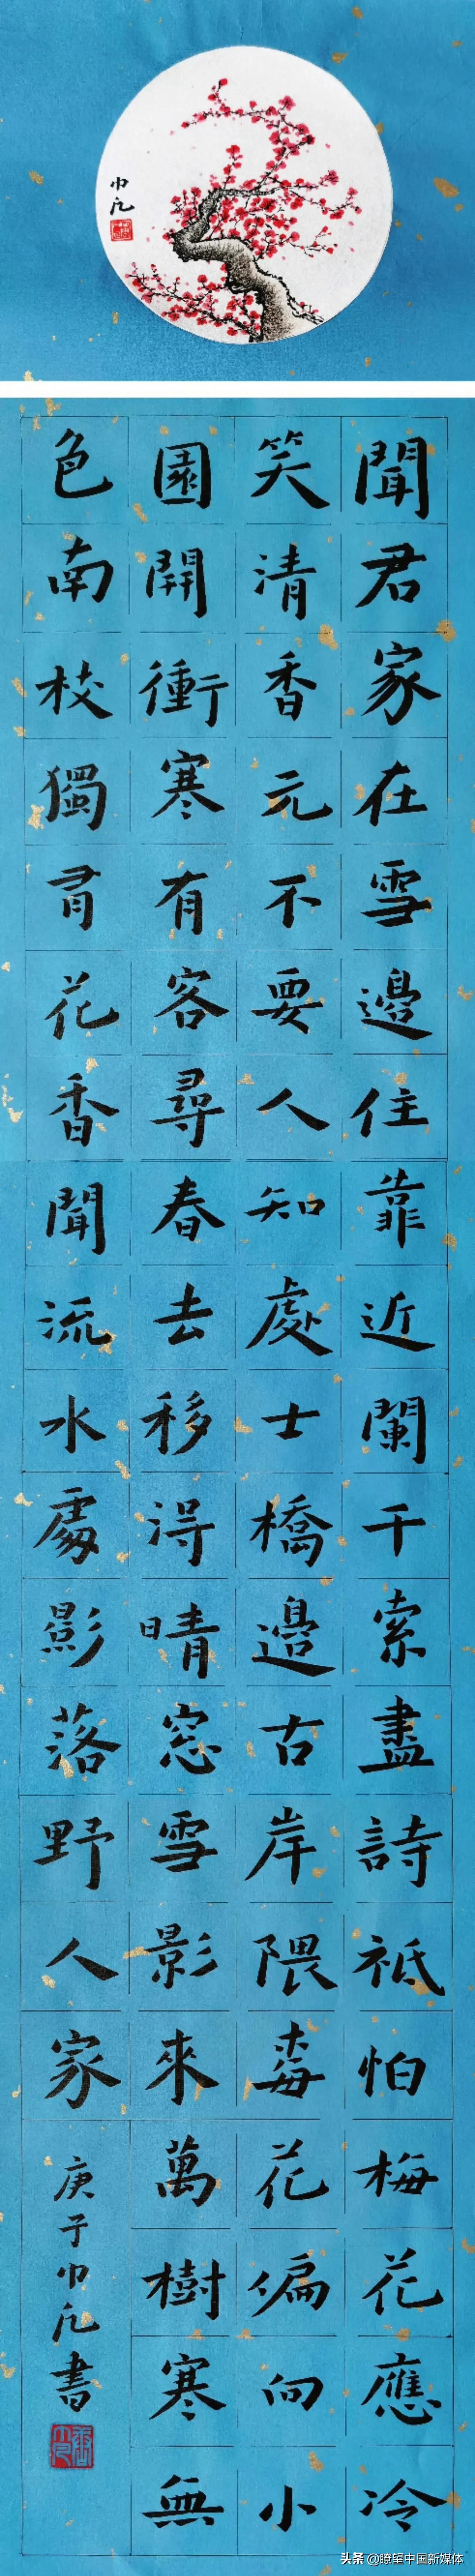 巾凡
聞君家在雪邊住靠近闌干索盡詩祗怕梅花應冷
笑清香元不要人知處士橋邊古岸隈梅花偏向小
園開衝寒有客尋春去移得晴窓雪影來萬樹寒無
色南枝獨有花香聞流水處影落野人家
庚子巾凡書
头条 @瞭望中国新媒体